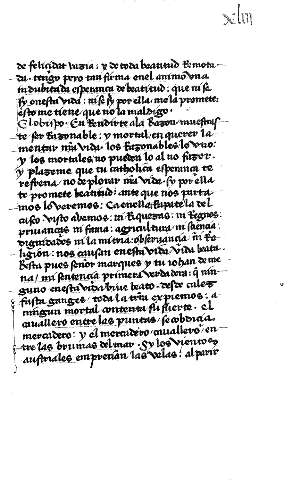 xlııı
de felicidat luzia: y de toda beatitud Remota
da. tengo pero tan firma enel animo vna
indubitada esperança de beatitud: que ni se
sy enesta vida: ni se sy por ella me la promete:
esto me tiene que no la maldigo.
El obispo. En Rendirte ala Razon muestras
te ser Razonable: y mortal en querer la
mentar mja vida los Razonables lo vno:
y los mortales no pueden lo al no fazer.
y plazeme que tu catholica esperança te
refrena. no deplorar mja vida. sy por ella
te promete beatitud: ante que nos parta
mos lo veremos: Ca enella Rueda del
caso visto abemos: ni Riquezas: ni Regnos:
priuanças ni fama: agricultura ni sciencia:
dignidades ni la mitra: obseruancia ni Re
ligion: nos causan enesta vida vida beata
Resta pues señor marques y tu johan de me
na / mi sentencia primera verdadera: q nin
guno enesta vida biue beato. desde calez
fasta ganges: toda la tierra expiemos: a
ningun mortal contenta su suerte. el
cauallero entre las puntas se cobdicia
mercadero: y el mercadero cauallero en
tre las brumas del mar. Sy los vientos
australes emprenian las velas: al parir